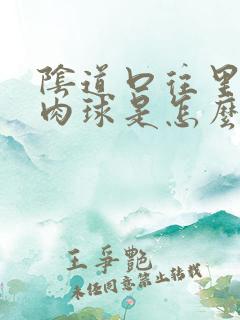 陰道口往里
肉球是怎麼
王爭艷
未经同意禁止转载